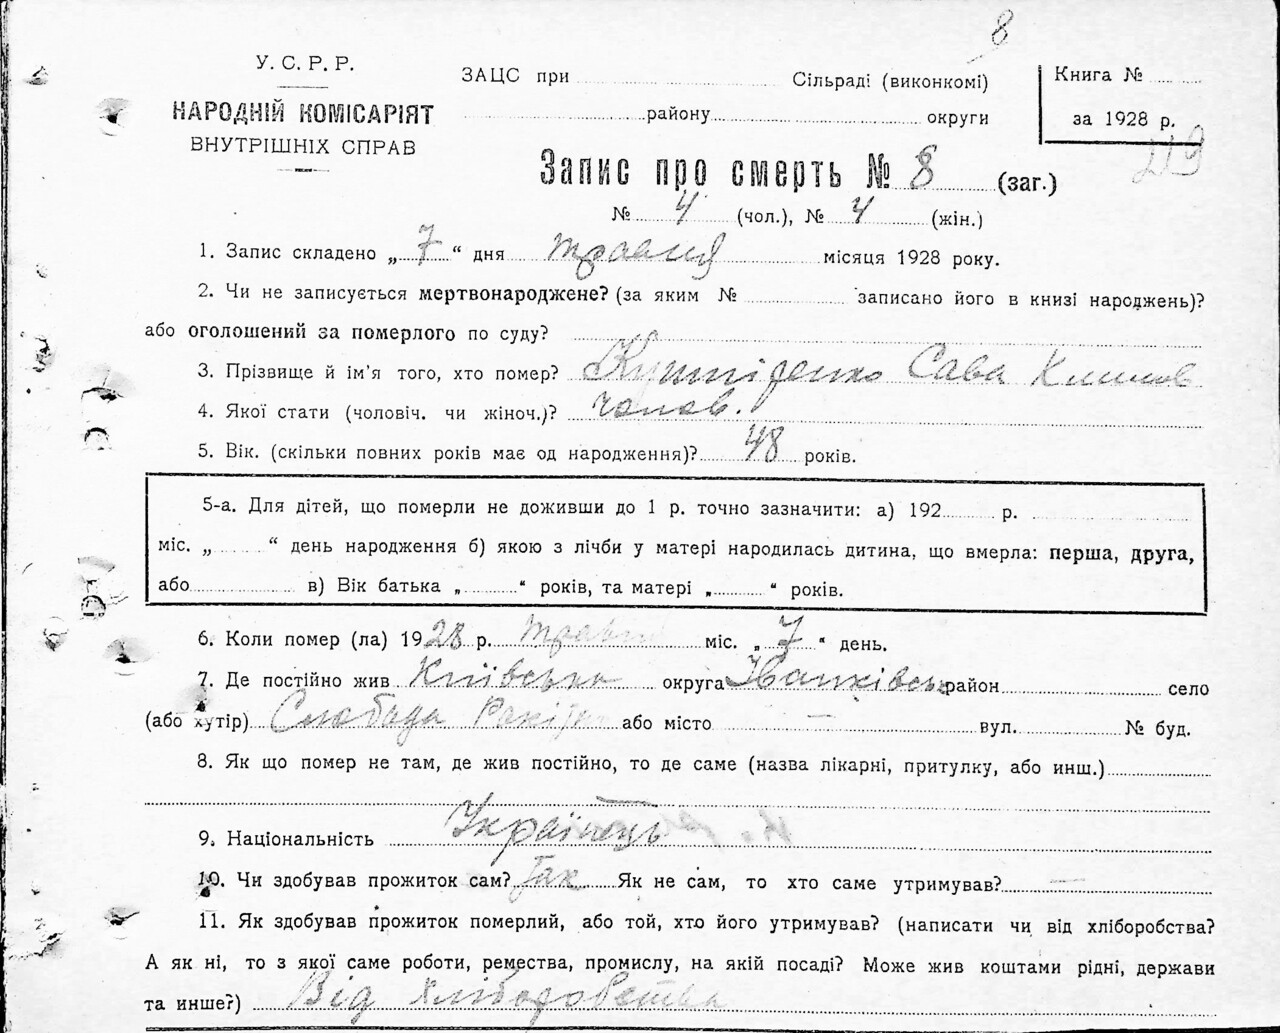 8
У. С. Р. Р.
НАРОДНІЙ КОМІСАРІЯТ
ВНУТРІШНІХ СПРАВ
ЗАЦС при Сільраді (виконкомі)
району округи
Книга №
за 1928 р.
219
Запис про смерть № 8 (заг.)
№ 4 (чол.), № 4 (жін.)
1. Запис складено „7“ дня травня місяця 1928 року.
2. Чи не записується мертвонароджене? (за яким № записано його в книзі народжень)?
або оголошений за померлого по суду?
3. Прізвище й ім’я того, хто помер? Сава Климов
4. Якої стати (чоловіч. чи жіноч.)? чолов.
5. Вік. (скільки повних років має од народження)? 48 років.
5-а. Для дітей, що померли не доживши до 1 р. точно зазначити: а) 192 р.
міс. „ “ день народження б) якою з лічби у матері народилась дитина, що вмерла: перша, друга,
або в) Вік батька „ “ років, та матері „ “ років.
6. Коли помер (ла) 1928 р. травня міс. „7“ день.
7. Де постійно жив Київська округа Іванківськ район село
(або хутір) Слобода або місто — вул. № буд.
8. Як що помер не там, де жив постійно, то де саме (назва лікарні, притулку, або инш.)
9. Національність Українець
10. Чи здобував прожиток сам? Так Як не сам, то хто саме утримував? —
11. Як здобував прожиток померлий, або той, хто його утримував? (написати чи від хліборобства?
А як ні, то з якої саме роботи, ремества, промислу, на якій посаді? Може жив коштами рідні, держави
та инше?) Від хліборобства